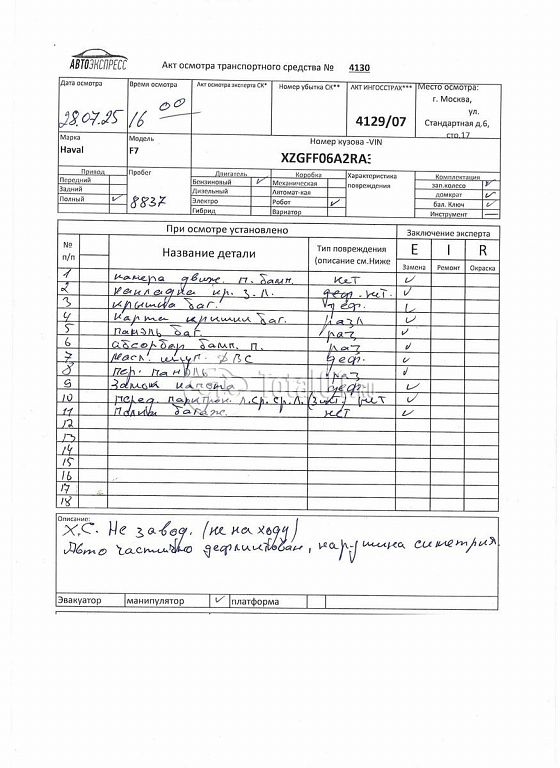 АВТОЭКСПРЕСС
Акт осмотра транспортного средства № 4130
Дата осмотра
Время осмотра
Акт осмотра эксперта СК*
Номер убытка СК**
АКТ ИНГОССТРАХ***
Место осмотра:
г. Москва,
ул.
Стандартная д.6,
стр.17
28.07.25
16 00
4129/07
Марка
Модель
Номер кузова -VIN
Haval
F7
XZGFF06A2RA
Привод
Пробег
Двигатель
Коробка
Характеристика
повреждения
Комплектация
Передний
Бензиновый ✓
Механическая
зап.колесо ✓
Задний
Дизельный
Автомат-кая
домкрат ✓
Полный ✓
8837
Электро
Робот ✓
бал. Ключ ✓
Гибрид
Вариатор
Инструмент —
При осмотре установлено
Заключение эксперта
№
п/п
Название детали
Тип повреждения
(описание см.Ниже
E I R
Замена Ремонт Окраска
1 камера движ. п. бамп. нет ✓
2 накладка кр. З.Л. деф. нет. ✓
3 крышка баг. деф. ✓
4 карта крышки баг. разл ✓
5 панель баг. раз ✓
6 абсорбер бамп. п. раз ✓
7 масл. щуп. ДВС деф. ✓
8 пер. панель раз ✓
9 Замок капота деф. ✓
10 перед. парктрон. л.ср. ср.п. (3шт.) нет ✓
11 Полка багаж. нет ✓
12
13
14
15
16
17
18
Описание:
Х.С. Не завод. (не на ходу)
Авто частично дефлинтован, нарушина симетрия.
Эвакуатор манипулятор ✓ платформа